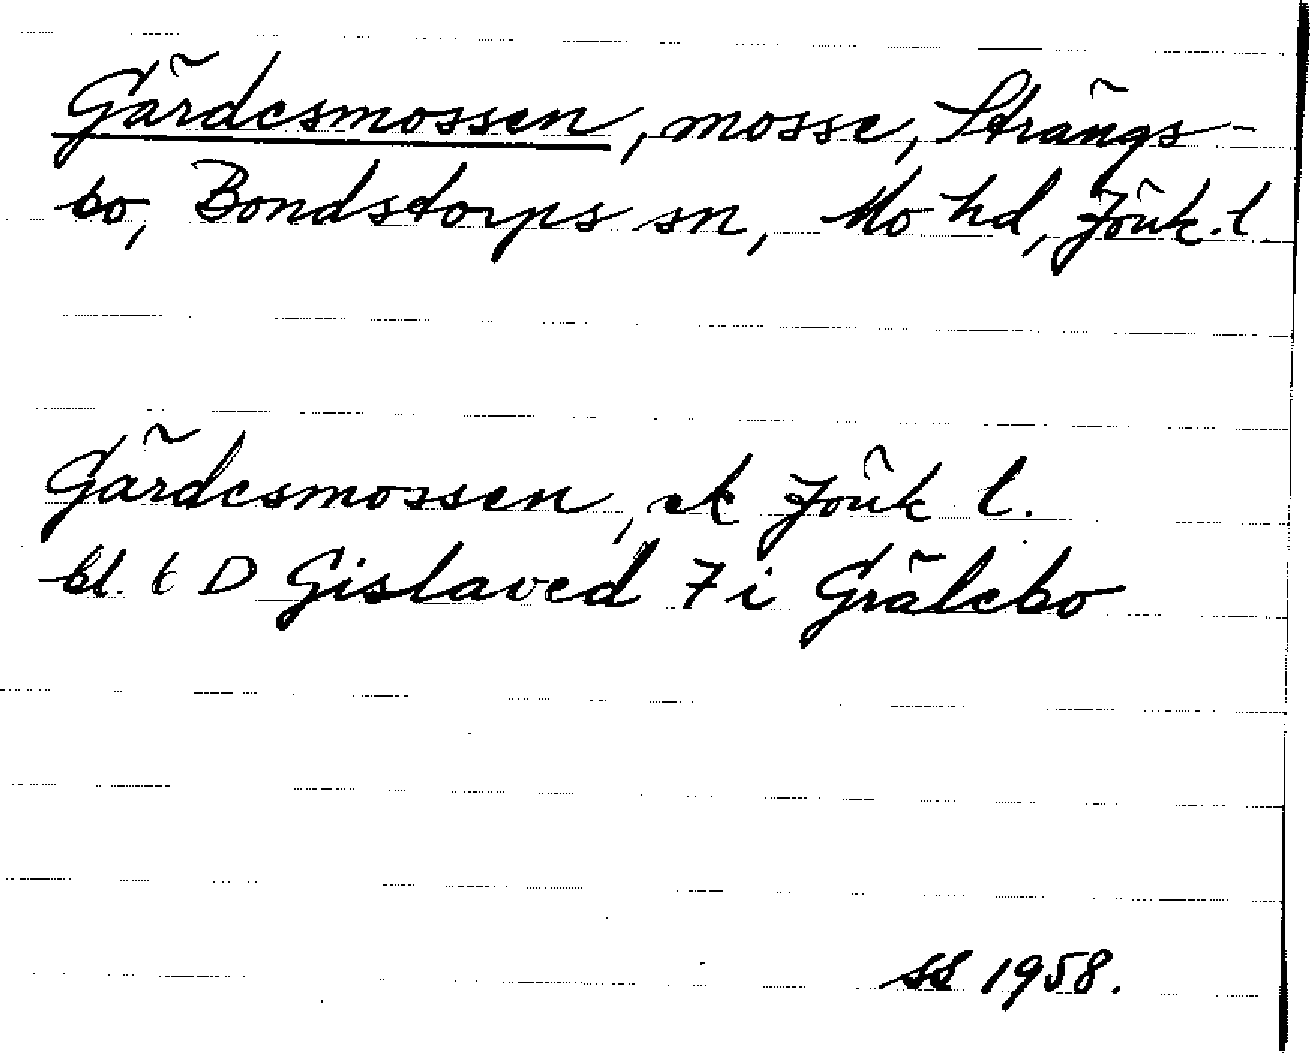 Gärdesmossen, mosse, Strängs-
bo, Bondstorps sn, Mo hd, Jönk. l
Gärdesmossen, ek Jönk l.
bl. 6 D Gislaved 7 i Grälebo
SS 1958.